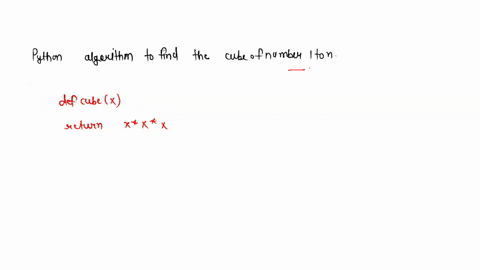 Python algorithm to find the cube of number 1 to n.
def cube(x)
return x* x* x